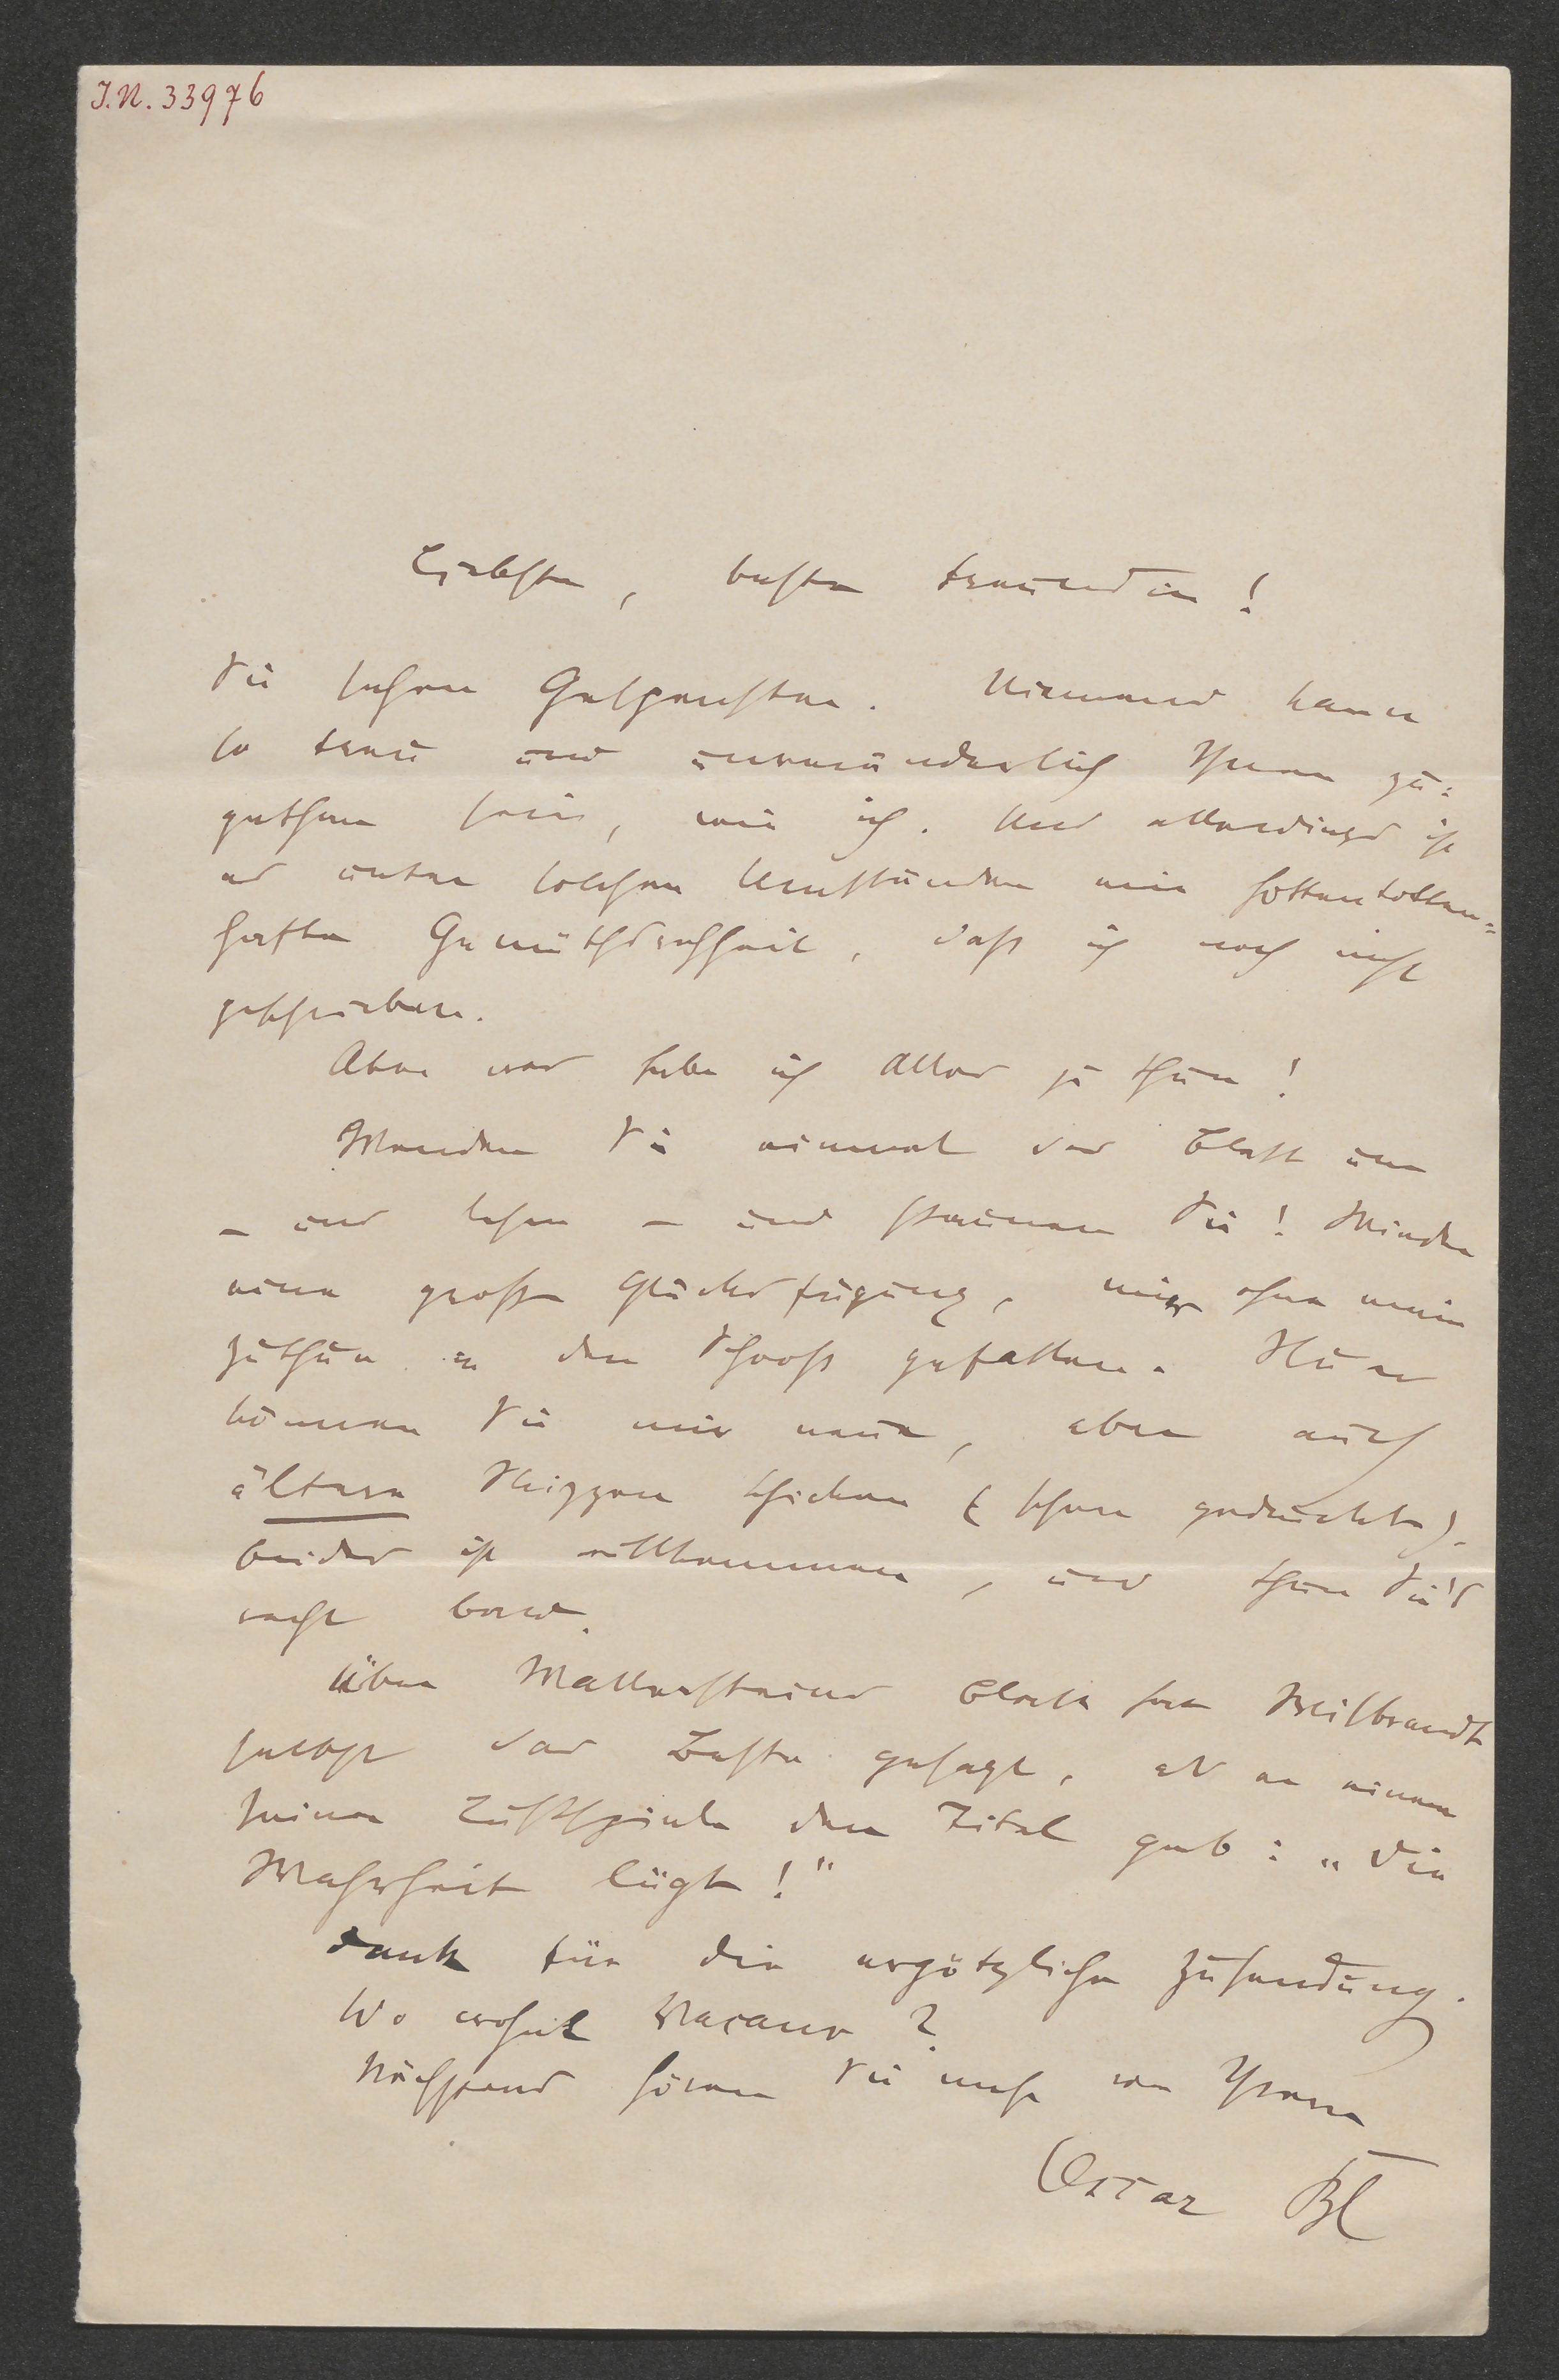 I.N. 33976
Liebste, beste Freundin!
Sie sehen Gespenster. Niemand kann
so treu und unveränderlich Ihnen zu-
gethan sein, wie ich. Und allerdings ist
es unter solchen Umständen eine hottentotten-
hafte Gemüthsrohheit, daß ich noch nicht
geschrieben.
Aber was habe ich Alles zu thun!
Wenden Sie einmal das Blatt um
– und lesen – und staunen Sie! Wieder
eine große Glücksfügung, mir ohne mein
Zuthun in den Schooß gefallen. Nun
können Sie mir neue, aber auch
ältere Skizzen schicken (schon gedruckte).
Beides ist willkommen, und thun Sie's
recht bald.
Über Wallersteins Blatt hat Wilbrandt
selbst das Beste gesagt, als er einem
seiner Lustspiele den Titel gab: „Die
Wahrheit lügt!"
Dank für die ergötzliche Zusendung.
Wo wohnt Vacano?
Nächstens hören Sie mehr von Ihrem
Oscar Bl